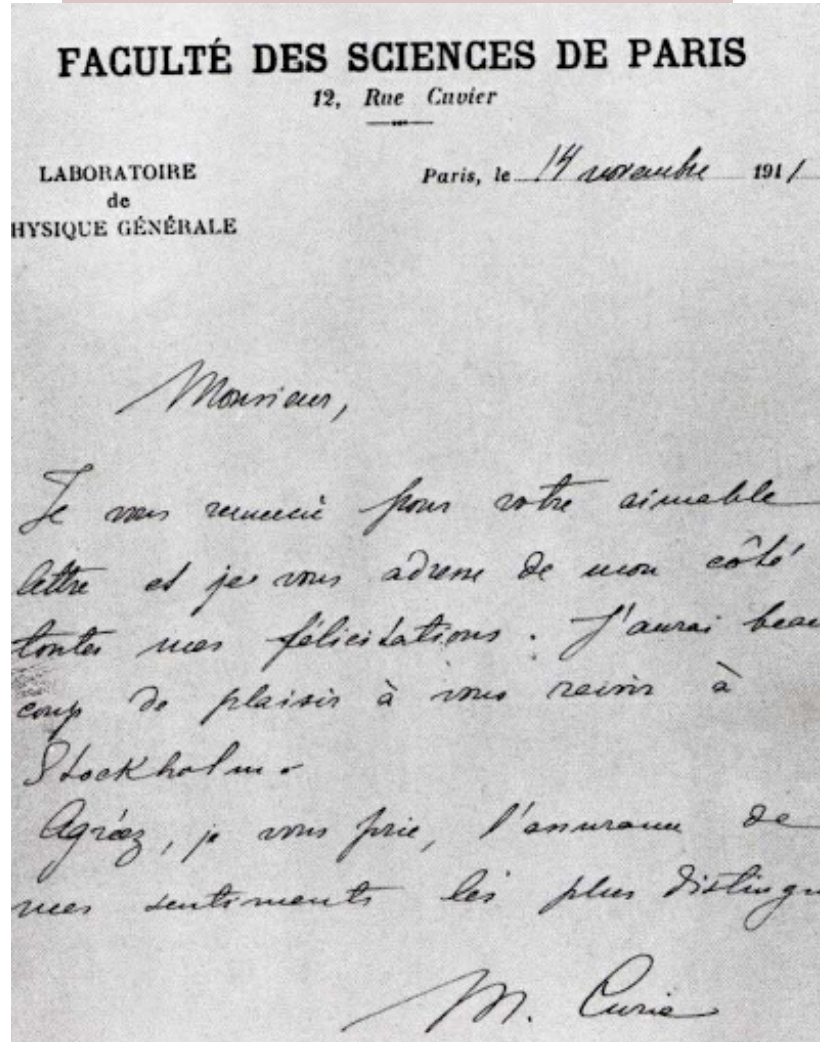 FACULTÉ DES SCIENCES DE PARIS
12, Rue Cuvier
LABORATOIRE
de
HYSIQUE GÉNÉRALE
Paris, le 14 novembre 1911
Monsieur,
Je vous remercie pour votre aimable
lettre et je vous adresse de mon côté
toutes mes félicitations. J'aurai beau
coup de plaisir à vous revoir à
Stockholm.
Agréez, je vous prie, l'assurance de
mes sentiments les plus distingu
M. Curie